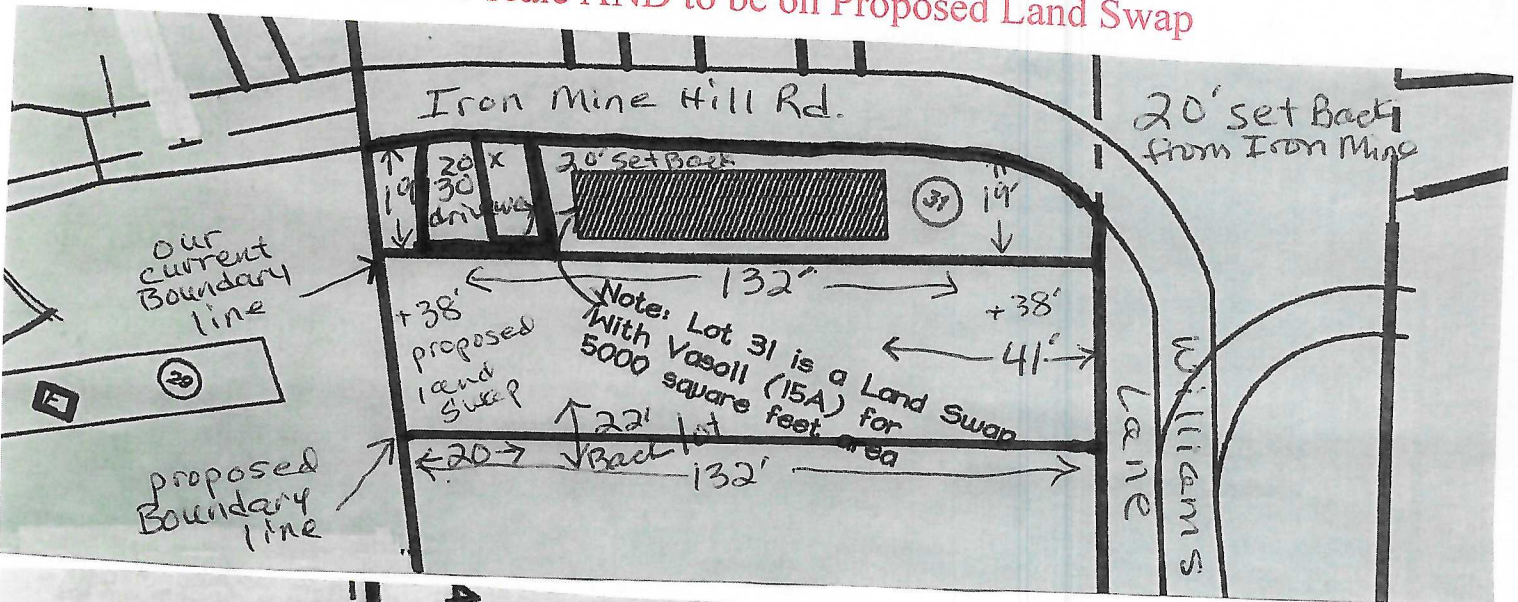 AND to be on Proposed Land Swap
Iron Mine Hill Rd.
20' set Back
from Iron Mine
19'
20 x
30
driveway
20' Set Back
31
19'
our
current
Boundary
line
132'
+38'
proposed
land
Swap
+38'
41'
Note: Lot 31 is a Land Swap
With Vasoll (15A) for
5000 square feet area
20
22'
Back lot
20
132'
proposed
Boundary
line
Williams
Lane